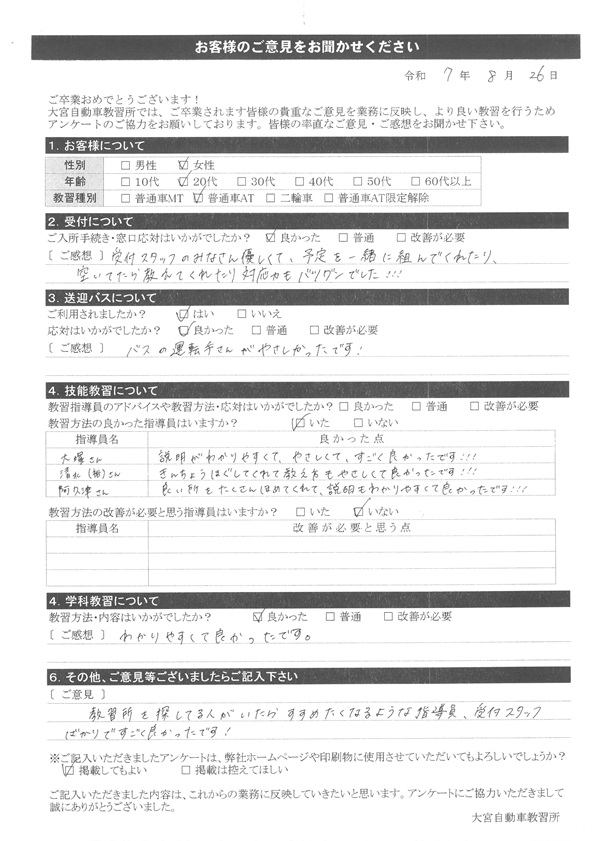 お客様のご意見をお聞かせください
令和 7 年 8 月 26 日
ご卒業おめでとうございます！
大宮自動車教習所では、ご卒業されます皆様の貴重なご意見を業務に反映し、より良い教習を行うため
アンケートのご協力をお願いしております。皆様の率直なご意見・ご感想をお聞かせ下さい。
1. お客様について
性別 □ 男性 ☑ 女性
年齢 □ 10代 ☑ 20代 □ 30代 □ 40代 □ 50代 □ 60代以上
教習種別 □ 普通車MT ☑ 普通車AT □ 二輪車 □ 普通車AT限定解除
2. 受付について
ご入所手続き・窓口応対はいかがでしたか？ ☑ 良かった □ 普通 □ 改善が必要
〔 ご感想 〕 受付スタッフのみなさん優しくて、予定を一緒に組んでくれたり、
空いてたら教えてくれたり対応力もバツグンでした!!!
3. 送迎バスについて
ご利用されましたか？ ☑ はい □ いいえ
応対はいかがでしたか？ ☑ 良かった □ 普通 □ 改善が必要
〔 ご感想 〕 バスの運転手さんがやさしかったです！
4. 技能教習について
教習指導員のアドバイスや教習方法・応対はいかがでしたか？ □ 良かった □ 普通 □ 改善が必要
教習方法の良かった指導員はいますか？ ☑ いた □ いない
指導員名 良かった点
大塚さん 説明がわかりやすくて、やさしくて、すごく良かったです!!!
清水（裕）さん きんちょうほぐしてくれて教え方もやさしくて良かったです!!!
阿久津さん 良い所をたくさんほめてくれて、説明もわかりやすくて良かったです!!!
教習方法の改善が必要と思う指導員はいますか？ □ いた ☑ いない
指導員名 改善が必要と思う点
4. 学科教習について
教習方法・内容はいかがでしたか？ ☑ 良かった □ 普通 □ 改善が必要
〔 ご感想 〕 わかりやすくて良かったです。
6. その他、ご意見等ございましたらご記入下さい
〔 ご意見 〕
教習所を探してる人がいたらすすめたくなるような指導員、受付スタッフ
ばかりですごく良かったです！
※ご記入いただきましたアンケートは、弊社ホームページや印刷物に使用させていただいてもよろしいでしょうか？
☑ 掲載してもよい □ 掲載は控えてほしい
ご記入いただきました内容は、これからの業務に反映していきたいと思います。アンケートにご協力いただきまして
誠にありがとうございました。
大宮自動車教習所